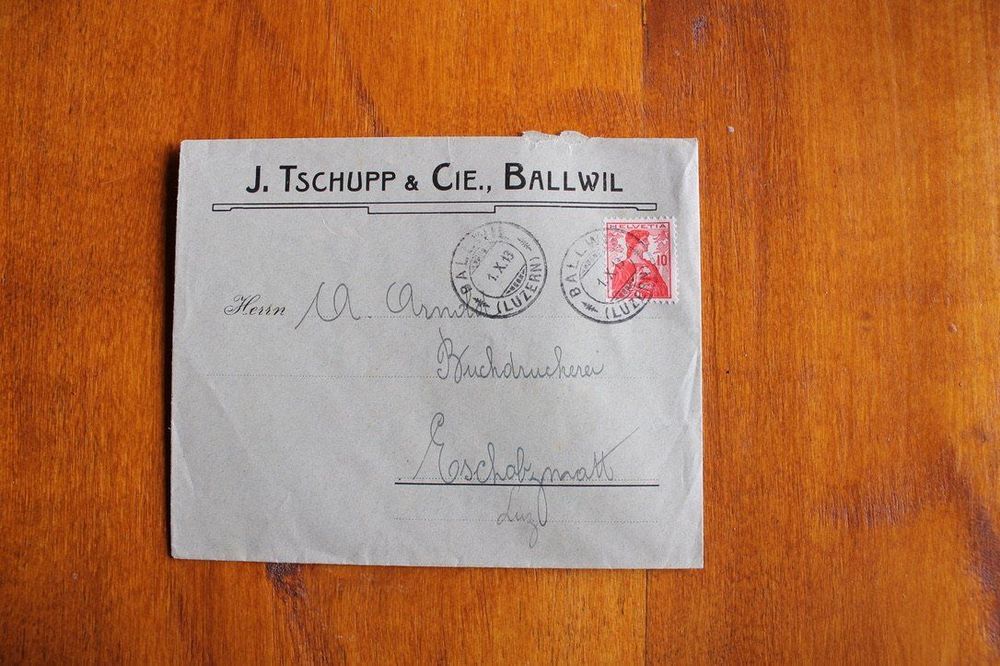 J. TSCHUPP & CIE., BALLWIL
HELVETIA
10
BALLWIL
1.X.13
(LUZERN)
BALLWIL
1.X.13
(LUZERN)
Herrn A. Arnold
Buchdruckerei
Escholzmatt
Luz